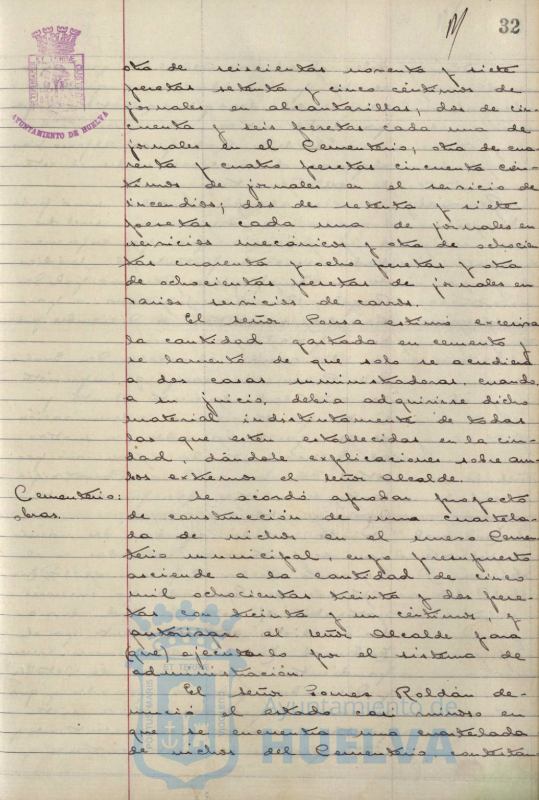 32
AYUNTAMIENTO DE HUELVA
otra de seiscientas noventa y siete
pesetas setenta y cinco céntimos de
jornales en alcantarillas; dos de cin-
cuenta y seis pesetas cada una de
jornales en el Cementerio; otra de cua-
renta y cuatro pesetas cincuenta cén-
timos de jornales en el servicio de
incendios; dos de setenta y siete
pesetas cada una de jornales en
servicios mecánicos y otra de ochocien-
tas cuarenta y ocho pesetas y otra
de ochocientas pesetas de jornales en
varios servicios de carros.
El señor Ponsa estimó excesiva
la cantidad gastada en cemento y
se lamentó de que solo se acudiera
a dos casas suministradoras, cuando,
a su juicio, debía adquirirse dicho
material indistintamente de todas
las que estén establecidas en la ciu-
dad, dándole explicaciones sobre am-
bos extremos el señor Alcalde.
Cementerio:
obras.
Se acordó aprobar proyecto
de construcción de una cuartela-
da de nichos en el nuevo Cemen-
terio municipal, cuyo presupuesto
asciende a la cantidad de cinco
mil ochocientas treinta y dos pese-
tas con treinta y un céntimos, y
autorizar al señor Alcalde para
(que) ejecutarlo por el sistema de
administración.
El señor Gomez Roldán de-
nunció el estado casi ruinoso en
que se encuentra una cuartelada
de nichos del Cementerio, contestan-
Ayuntamiento de
HUELVA